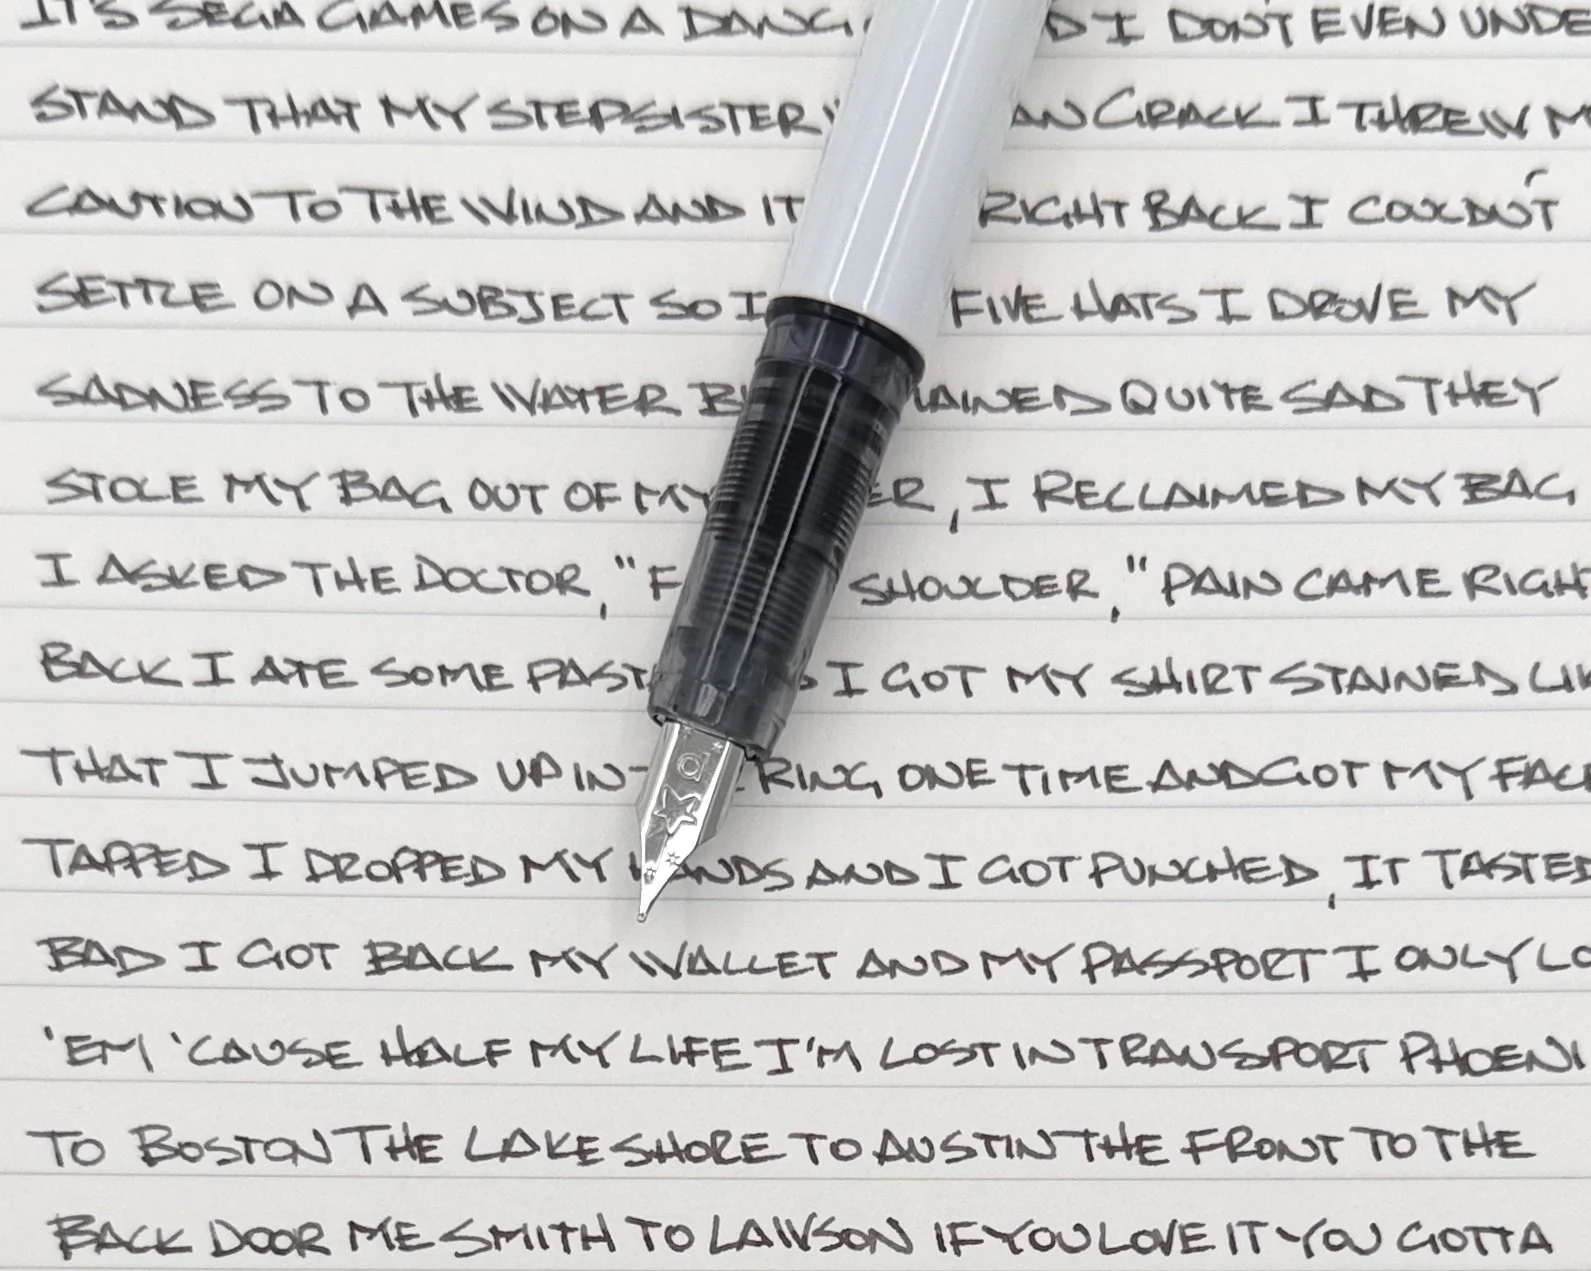 IT'S SEGA GAMES ON A DANG D I DON'T EVEN UNDE
STAND THAT MY STEPSISTER AN CRACK I THREW M
CAUTION TO THE WIND AND IT RIGHT BACK I COULDN'T
SETTLE ON A SUBJECT SO I FIVE HATS I DROVE MY
SADNESS TO THE WATER B AINED QUITE SAD THEY
STOLE MY BAG OUT OF MY ER, I RECLAIMED MY BAG
I ASKED THE DOCTOR, "F SHOULDER," PAIN CAME RIGH
BACK I ATE SOME PAST I GOT MY SHIRT STAINED LIK
THAT I JUMPED UP IN RING ONE TIME AND GOT MY FACE
TAPPED I DROPPED MY HANDS AND I GOT PUNCHED, IT TASTED
BAD I GOT BACK MY WALLET AND MY PASSPORT I ONLY LO
'EM 'CAUSE HALF MY LIFE I'M LOST IN TRANSPORT PHOENI
TO BOSTON THE LAKE SHORE TO AUSTIN THE FRONT TO THE
BACK DOOR ME SMITH TO LAWSON IF YOU LOVE IT YOU GOTTA